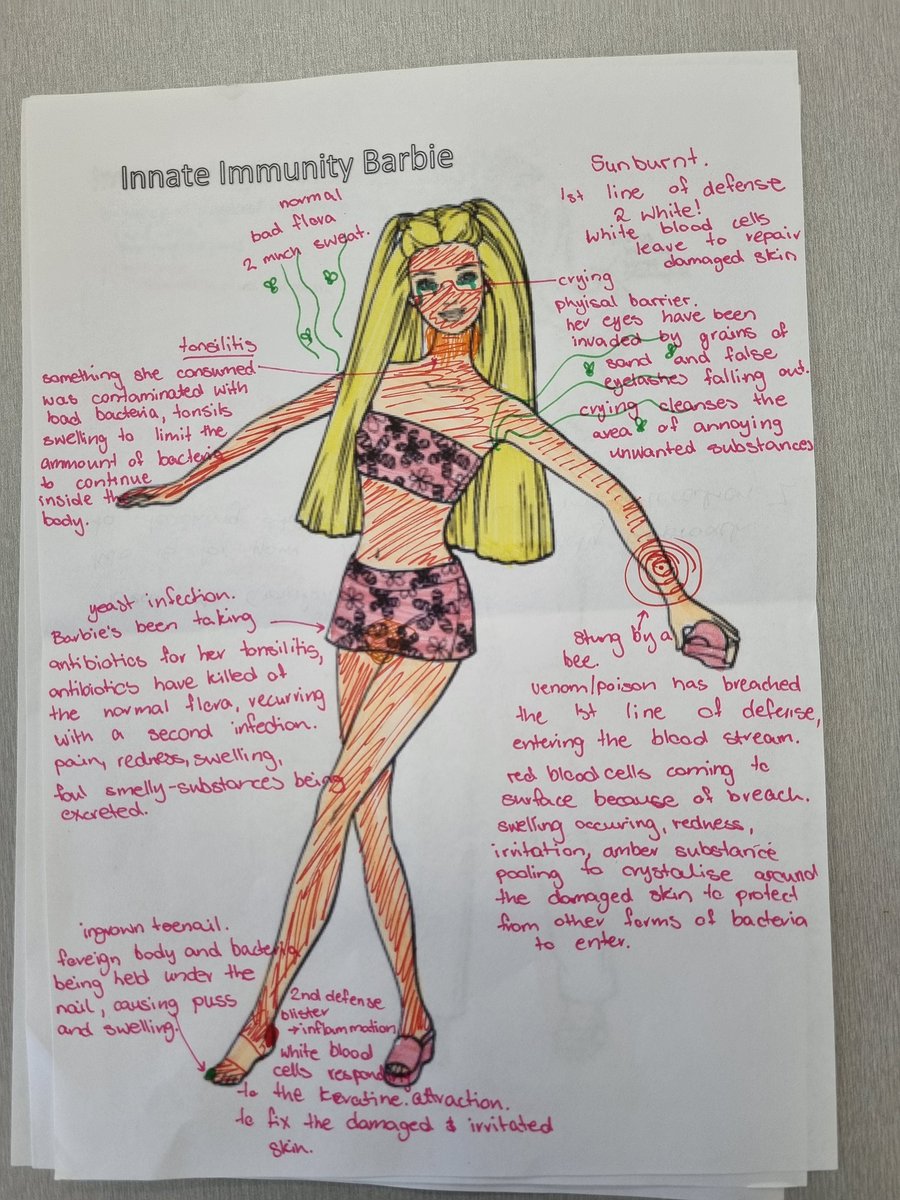 Innate Immunity Barbie
normal
bad flora
2 much sweat.
Sunburnt.
1st line of defense
2 white!
white blood cells
leave to repair
damaged skin
crying
phyisal barrier.
her eyes have been
invaded by grains of
sand and false
eyelashes falling out.
crying cleanses the
area of annoying
unwanted substances
tonsilitis
something she consumed
was contaminated with
bad bacteria, tonsils
swelling to limit the
ammount of bacteria
to continue
inside the
body.
yeast infection.
Barbie's been taking
antibiotics for her tonsilitis,
antibiotics have killed of
the normal flora, recurring
with a second infection.
pain, redness, swelling,
foul smelly-substances being
excreted.
stung by a
bee.
venom/poison has breached
the 1st line of defense,
entering the blood stream.
red blood cells coming to
surface because of breach.
swelling occuring, redness,
irritation, amber substance
pooling to crystalise around
the damaged skin to protect
from other forms of bacteria
to enter.
ingrown toenail.
foreign body and bacteria
being held under the
nail, causing puss
and swelling.
2nd defense
blister
→inflammation
white blood
cells respond
to the keratine. attraction.
to fix the damaged & irritated
skin.